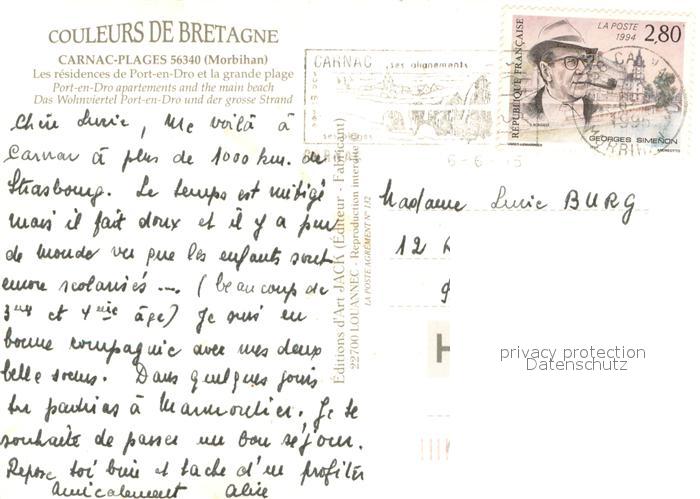 COULEURS DE BRETAGNE
CARNAC-PLAGES 56340 (Morbihan)
Les résidences de Port-en-Dro et la grande plage
Port-en-Dro apartements and the main beach
Das Wohnviertel Port-en-Dro und der grosse Strand
Chère Lucie, Me voilà à
Carnac à plus de 1000 km. de
Strasbourg. Le temps est mitigé
mais il fait doux et il y a peu
de monde vu que les enfants sont
encore scolarisés ... (beaucoup de
3me et 4me âge) Je suis en
bonne compagnie avec mes deux
belle soeurs. Dans quelques jours
tu partiras à Marmoutier. Je te
souhaite de passer un bon séjour.
Repose toi bien et tache d'en profiter
Amicalement Alice
Éditions d'Art JACK (Éditeur - Fabricant)
22700 LOUANNEC - Reproduction interdite
LA POSTE AGRÉMENT N° 132
CARNAC ses alignements
6-6-95
RÉPUBLIQUE FRANÇAISE
LA POSTE
1994
2,80
GEORGES SIMENON
MORBIHAN
Madame Lucie BURG
12
H
privacy protection
Datenschutz